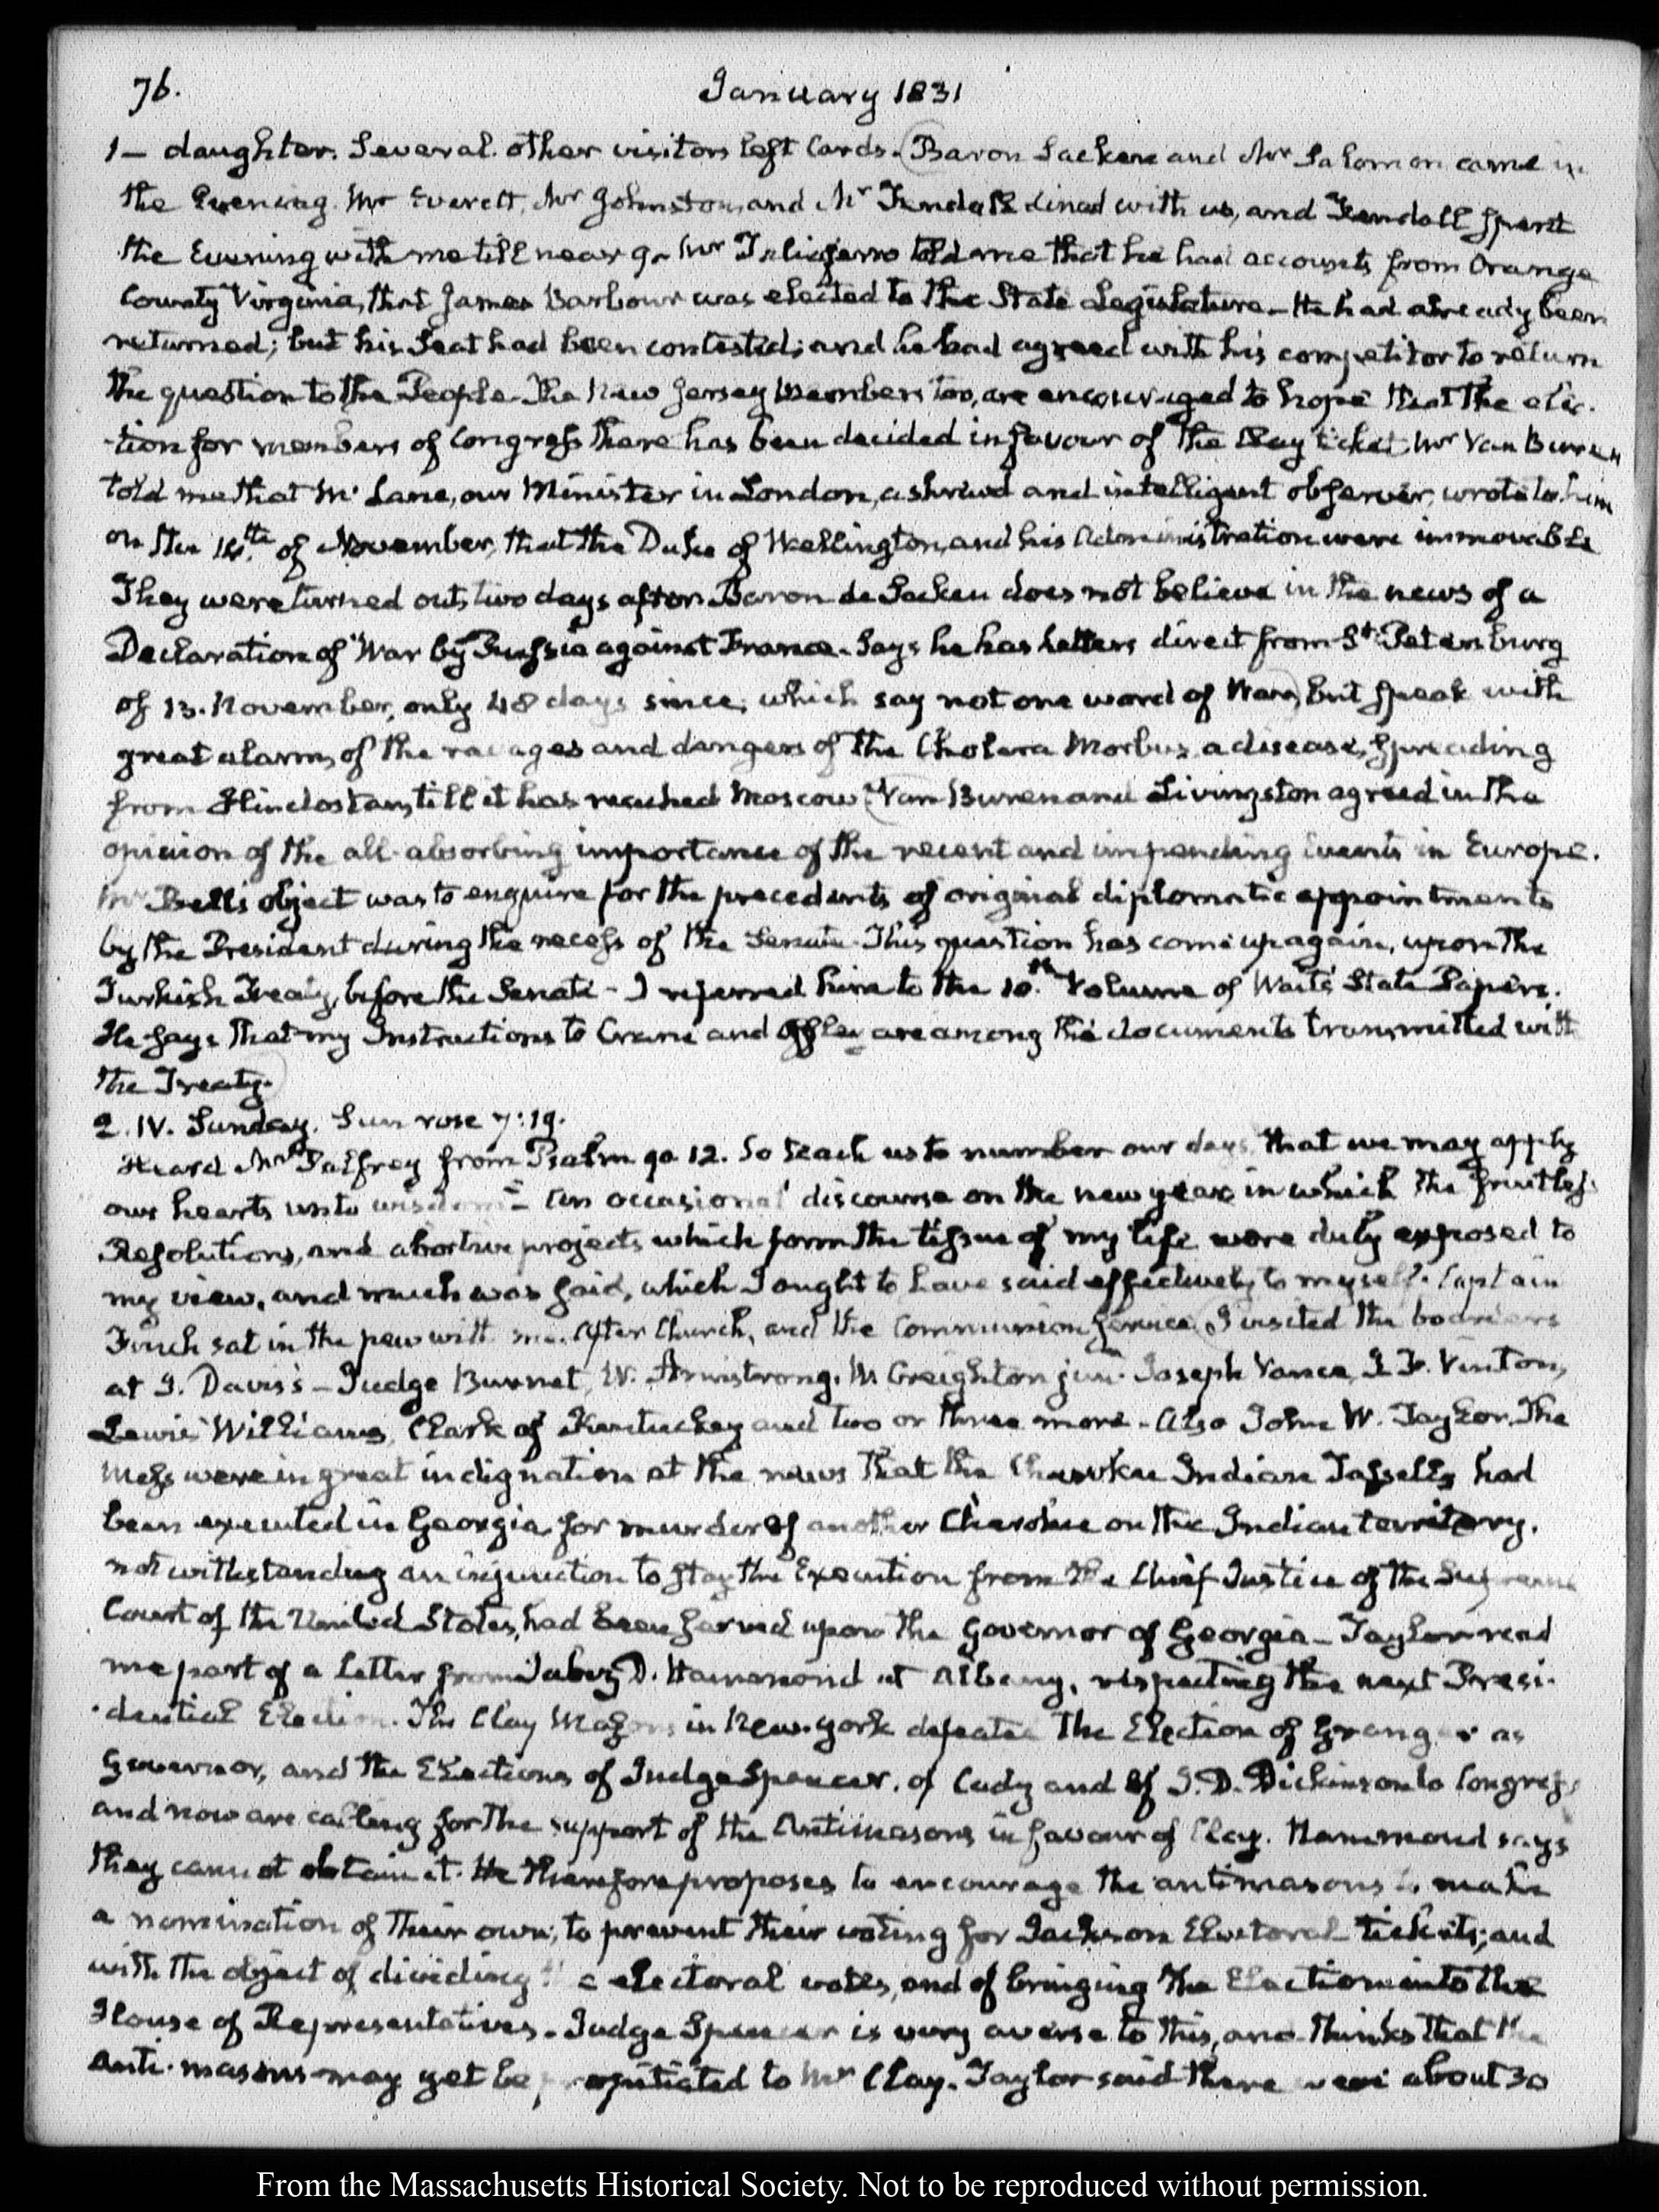 76.
January 1831
1— daughter. Several other visitors left Cards. Baron Sacken and Mr Salomon came in
the Evening. Mr Everett, Mr Johnston, and Mr Kendall dined with us, and Kendall spent
the Evening with me till near 9. Mr Taliaferro told me that he had accounts from Orange
County Virginia, that James Barbour was elected to the State Legislature – He had already been
returned; but his Seat had been contested; and he had agreed with his competitor to return
the question to the People. The New Jersey Members too, are encouraged to hope that the elec-
-tion for members of Congress there has been decided in favour of the Clay ticket. Mr Van Buren
told me that Mr Lane, our Minister in London, a shrewd and intelligent observer, wrote to him
on the 14th of November, that the Duke of Wellington, and his Administration were immovable
They were turned out, two days after. Baron de Sacken does not believe in the news of a
Declaration of War by Russia against France. Says he has Letters direct from St Petersburg
of 13. November, only 48 days since, which say not one word of War, but speak with
great alarm, of the ravages and dangers of the Cholera Morbus, a disease, spreading
from Hindostan, till it has reached Moscow. Van Buren and Livingston agreed in the
opinion of the all-absorbing importance of the recent and impending events in Europe.
Mr Bell's object was to enquire for the precedents of original diplomatic appointments
by the President during the recess of the Senate. This question has come up again, upon the
Turkish Treaty, before the Senate – I referred him to the 10th Volume of Wait's State Papers.
He says that my Instructions to Crane and Offley are among the documents transmitted with
the Treaty.
2. IV. Sunday. Sun rose 7:19.
Heard Mr Palfrey from Psalm 90 12. So teach us to number our days, that we may apply
our hearts unto wisdom – An occasional discourse on the new year in which the fruitless
Resolutions, and abortive projects which form the tissue of my life were duly exposed to
my view, and much was said, which I ought to have said effectively to myself. Captain
Finch sat in the pew with me. After Church, and the Communion Service, I visited the boarders
at J. Davis's – Judge Burnet, W. Armstrong, W Creighton junr. Joseph Vance, S. F. Vinton,
Lewis Williams, Clark of Kentucky and two or three more – Also John W. Taylor. The
Mess were in great indignation at the news that the Cherokee Indian Tassells had
been executed in Georgia for murder of another Cherokee on the Indian territory.
notwithstanding an injunction to stay the Execution from the Chief Justice of the Supreme
Court of the United States, had been served upon the Governor of Georgia – Taylor read
me part of a Letter from Jabez D. Hammond at Albany, respecting the next Presi-
-dential Election. The Clay Masons in New-York defeated the Election of Granger as
Governor, and the Elections of Judge Spencer, of Cady and of J. D. Dickinson to Congress
and now are calling for the support of the Antimasons in favour of Clay. Hammond says
they cannot obtain it. He therefore proposes to encourage the antimasons to make
a nomination of their own; to prevent their voting for Jackson Electoral tickets; and
with the object of dividing the electoral votes, and of bringing the Election into the
House of Representatives. Judge Spencer is very averse to this, and thinks that the
Anti-masons may yet be propitiated to Mr Clay. Taylor said there were about 30
From the Massachusetts Historical Society. Not to be reproduced without permission.